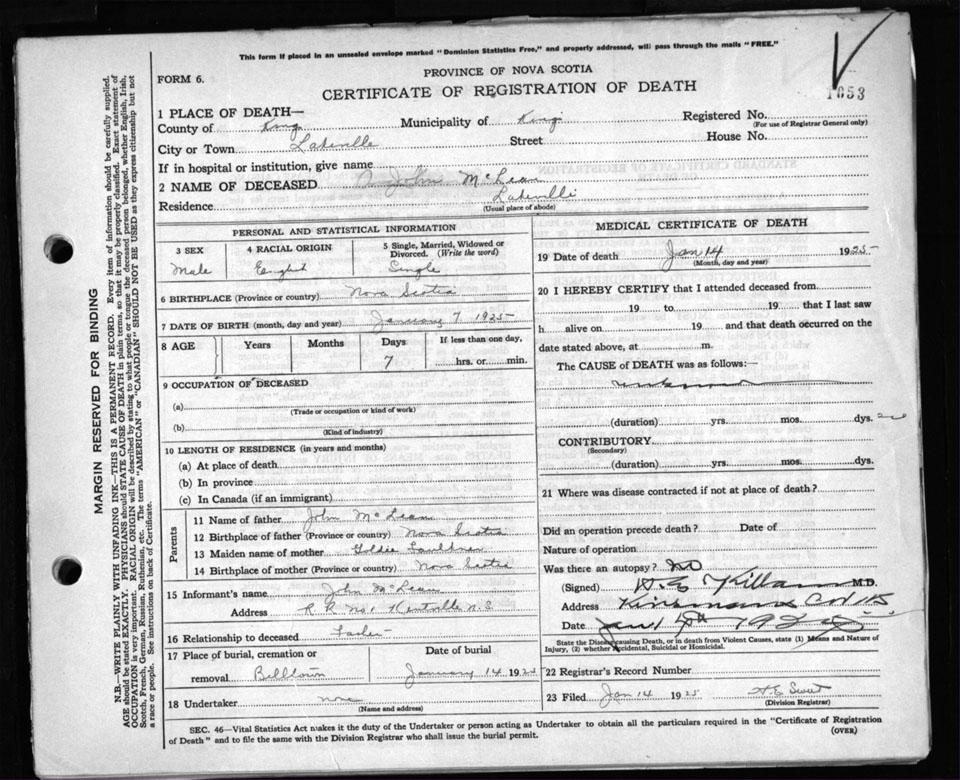 This form if placed in an unsealed envelope marked "Dominion Statistics Free," and properly addressed, will pass through the mails "FREE."
1653
FORM 6.
PROVINCE OF NOVA SCOTIA
CERTIFICATE OF REGISTRATION OF DEATH
1 PLACE OF DEATH—
County of Kings Municipality of Kings Registered No.
(For use of Registrar General only)
City or Town Lakeville Street House No.
If in hospital or institution, give name
2 NAME OF DECEASED John McLean
Residence Lakeville
(Usual place of abode)
PERSONAL AND STATISTICAL INFORMATION
3 SEX 4 RACIAL ORIGIN 5 Single, Married, Widowed or Divorced. (Write the word)
Male English Single
6 BIRTHPLACE (Province or country) Nova Scotia
7 DATE OF BIRTH (month, day and year) January 7 1925
8 AGE Years Months Days If less than one day,
7 hrs. or min.
9 OCCUPATION OF DECEASED
(a)
(Trade or occupation or kind of work)
(b)
(Kind of industry)
10 LENGTH OF RESIDENCE (in years and months)
(a) At place of death
(b) In province
(c) In Canada (if an immigrant)
Parents
11 Name of father John McLean
12 Birthplace of father (Province or country) Nova Scotia
13 Maiden name of mother Goldie
14 Birthplace of mother (Province or country) Nova Scotia
15 Informant's name John McLean
Address R R No 1 Kentville N.S
16 Relationship to deceased Father
17 Place of burial, cremation or removal Date of burial
Billtown January 14 1925
18 Undertaker none
(Name and address)
MEDICAL CERTIFICATE OF DEATH
19 Date of death Jan 14 1925
(Month, day and year)
20 I HEREBY CERTIFY that I attended deceased from
19 to 19 that I last saw
h alive on 19 and that death occurred on
date stated above, at m.
The CAUSE of DEATH was as follows:—
unknown
(duration) yrs. mos. dys.
CONTRIBUTORY
(Secondary)
(duration) yrs. mos. dys.
21 Where was disease contracted if not at place of death?
Did an operation precede death? Date of
Nature of operation
Was there an autopsy? No
(Signed) Killam M.D.
Address Kinsmans Cor NS
Date
State the Disease causing Death, or in death from Violent Causes, state (1) Means and Nature of
Injury, (2) whether Accidental, Suicidal or Homicidal.
22 Registrar's Record Number
23 Filed Jan 14 1925
(Division Registrar)
SEC. 46—Vital Statistics Act makes it the duty of the Undertaker or person acting as Undertaker to obtain all the particulars required in the "Certificate of Registration
of Death" and to file the same with the Division Registrar who shall issue the burial permit.
(OVER)
MARGIN RESERVED FOR BINDING
N.B.—WRITE PLAINLY WITH UNFADING INK—THIS IS A PERMANENT RECORD. Every item of information should be carefully supplied.
AGE should be stated EXACTLY. PHYSICIANS should STATE CAUSE OF DEATH in plain terms, so that it may be properly classified. Exact statement of
OCCUPATION is very important. RACIAL ORIGIN will be described by stating to what people or tongue the deceased person belonged, whether English, Irish,
Scotch, French, German, Russian, Ruthenian, etc. The terms "AMERICAN" or "CANADIAN" SHOULD NOT BE USED as they express citizenship but not
a race or people. See instructions on back of Certificate.